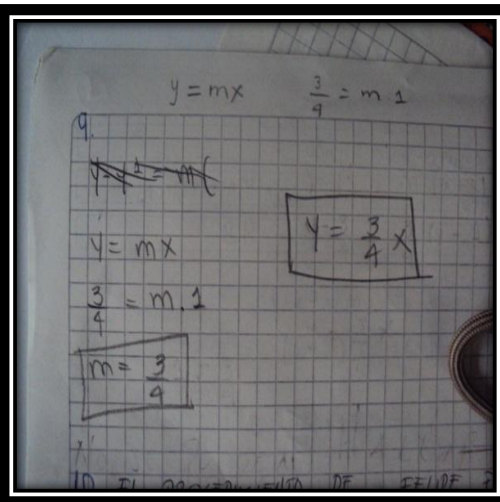 y = mx    3/4 = m.1
9.
y = mx
3/4 = m.1
m = 3/4
y = 3/4 x
10. EL DE